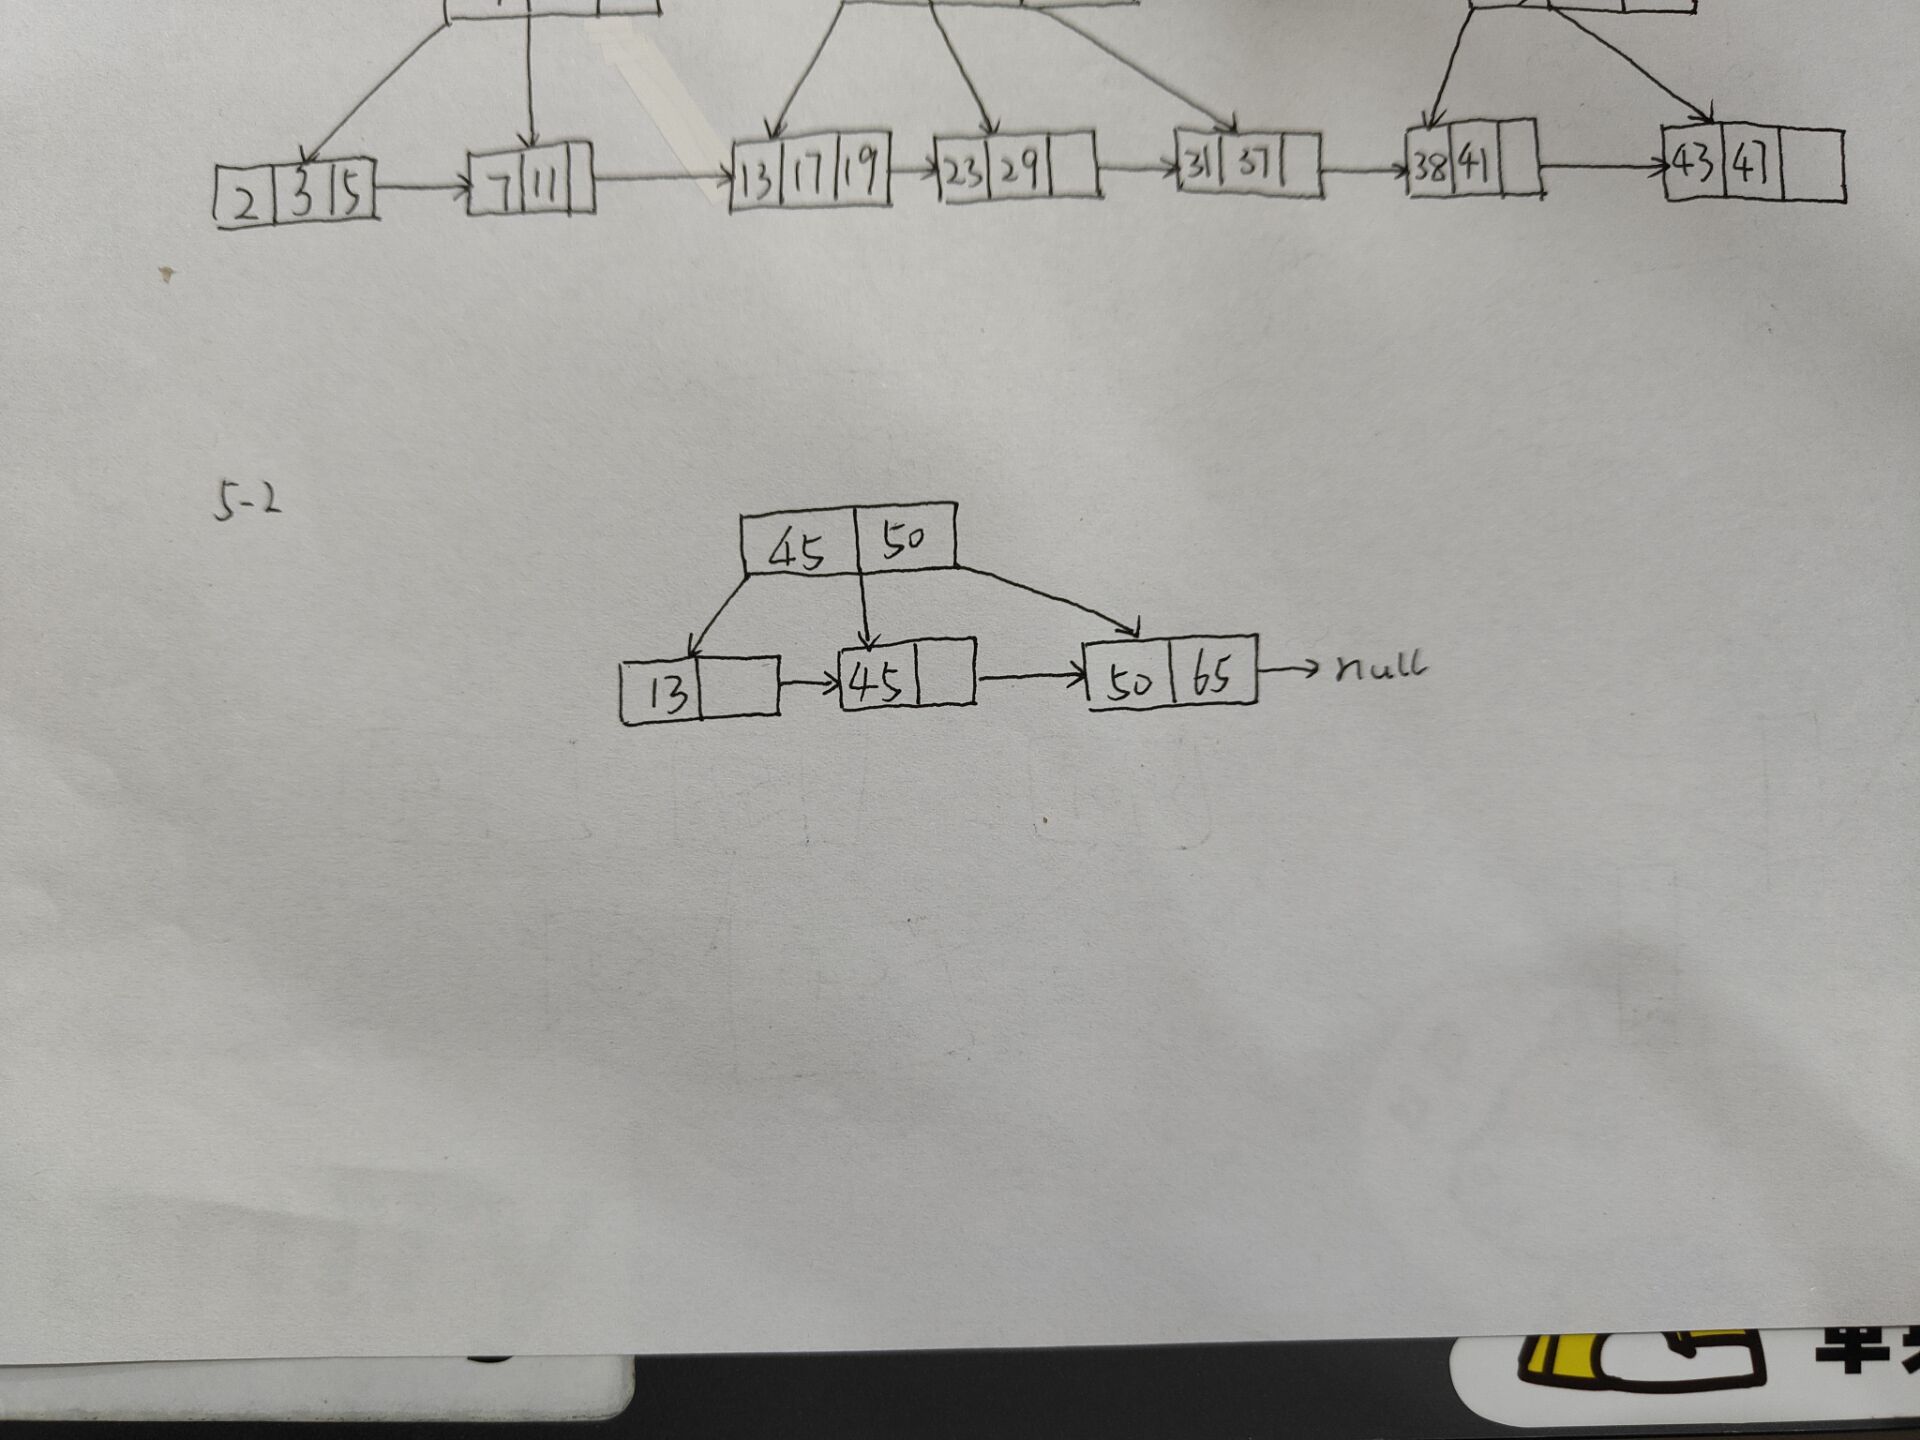 2 3 5 7 11 13 17 19 23 29 31 37 38 41 43 47
5-2
45 50
13 45 50 65 null